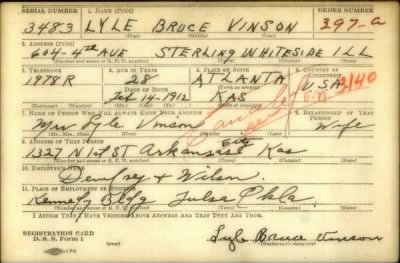 SERIAL NUMBER 1. NAME (Print) ORDER NUMBER
3483 LYLE BRUCE VINSON 397-a
2. ADDRESS (Print)
604-4th AVE STERLING WHITESIDE ILL
3. TELEPHONE 4. AGE IN YEARS 5. PLACE OF BIRTH 6. COUNTRY OF CITIZENSHIP
1978R 28 ATLANTA USA
DATE OF BIRTH
Feb 14-1912 KAS
7. NAME OF PERSON WHO WILL ALWAYS KNOW YOUR ADDRESS 8. RELATIONSHIP OF THAT PERSON
Mrs Lyle Vinson Wife
9. ADDRESS OF THAT PERSON
City
1327 N 1st ST Arkansas Kas
10. EMPLOYER'S NAME
Dempsey + Wilson
11. PLACE OF EMPLOYMENT OR BUSINESS
Kennedy Bldg Tulsa Okla
I AFFIRM THAT I HAVE VERIFIED ABOVE ANSWERS AND THAT THEY ARE TRUE.
REGISTRATION CARD
D. S. S. Form 1
Lyle Bruce Vinson
(Registrant's signature)